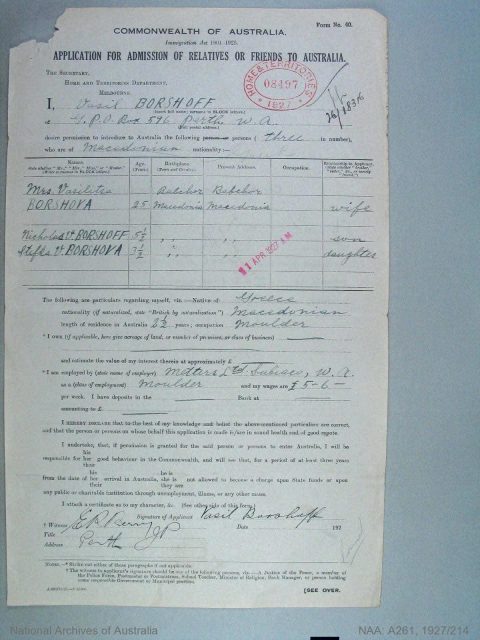 Form No. 40.
COMMONWEALTH OF AUSTRALIA.
Immigration Act 1901-1925.
APPLICATION FOR ADMISSION OF RELATIVES OR FRIENDS TO AUSTRALIA.
THE SECRETARY,
HOME AND TERRITORIES DEPARTMENT,
MELBOURNE.
HOME & TERRITORIES
03497
1927
I, Vasil BORSHOFF
of G.P.O Box 596 Perth W.A.
(Full postal address.)
desire permission to introduce to Australia the following person or persons ( three in number),
who are of Macedonian nationality:—
Names. Age. Birthplace. Present Address. Occupation. Relationship to Applicant
Mrs. Vasilitsa
BORSHOVA 25 Macedonia Macedonia wife
Nicholas V. BORSHOFF 5½ " " son
Stefka V. BORSHOVA 3½ " " daughter
1 APR 1927 A.M.
The following are particulars regarding myself, viz.—Native of Greece
nationality (if naturalized, state "British by naturalization") Macedonian
length of residence in Australia 2½ years; occupation Moulder
* I own (if applicable, here give acreage of land, or number of premises, or class of business)
and estimate the value of my interest therein at approximately £
* I am employed by (state name of employer) Metters Ltd Subiaco, W.A.
as a (class of employment) Moulder and my wages are £5-6-
per week. I have deposits in the Bank at
amounting to £
I HEREBY DECLARE that to the best of my knowledge and belief the above-mentioned particulars are correct,
and that the person or persons on whose behalf this application is made is/are in sound health and of good repute.
I undertake, that, if permission is granted for the said person or persons to enter Australia, I will be
his
responsible for her good behaviour in the Commonwealth, and will see that, for a period of at least three years
their
his he is
from the date of her arrival in Australia, she is not allowed to become a charge upon State funds or upon
their they are
any public or charitable institution through unemployment, illness, or any other cause.
I attach a certificate as to my character, &c. (See other side of this form.)
Signature of Applicant Vasil Borshoff
† Witness E R Berry Date 192
Title J P
Address Perth
NOTE.—* Strike out either of these paragraphs if not applicable.
† The witness to applicant's signature should be one of the following persons, viz.:—A Justice of the Peace, a member of
the Police Force, Postmaster or Postmistress, School Teacher, Minister of Religion, Bank Manager, or person holding
some responsible Government or Municipal position.
[SEE OVER.
National Archives of Australia
NAA: A261, 1927/214